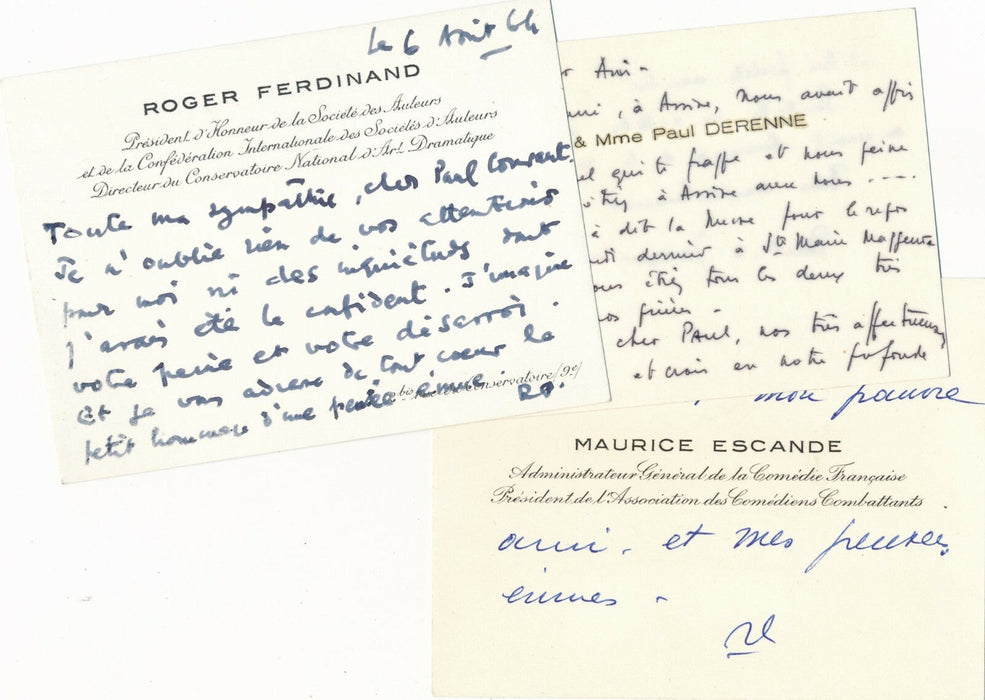 Le 6 Août 64
ROGER FERDINAND
Président d'Honneur de la Société des Auteurs
et de la Confédération Internationale des Sociétés d'Auteurs
Directeur du Conservatoire National d'Art Dramatique
Toute ma sympathie, cher Paul Courant.
Je n'oublie rien de vos attentions
pour moi ni des inquiétudes dont
j'avais été le confident. J'imagine
votre peine et votre désarroi.
Et je vous adresse de tout cœur le
petit hommage d'une pensée émue.
bis Conservatoire (9e)
RF.
Ami -
, à Assise, nous avait appris
& Mme Paul DERENNE
qui te frappe et nous peine
à Assise avec nous ----
dit la Messe pour le repos
dernier à Sta Maria Maggiore
tous les deux très
nos prières -
cher Paul, nos très affectueuses
et crois en notre profonde
, mon pauvre
MAURICE ESCANDE
Administrateur Général de la Comédie Française
Président de l'Association des Comédiens Combattants
ami, et mes pensées
émues -